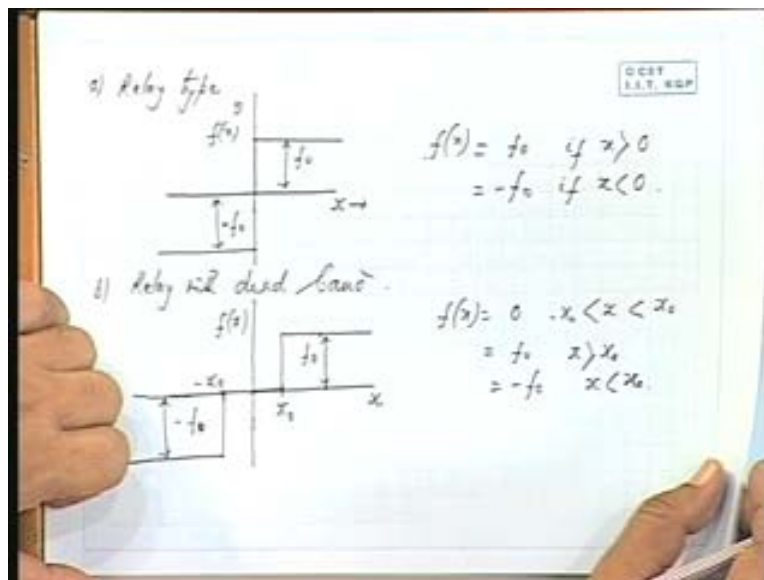 a) Relay type
O CET
I.I.T. KGP
f(x)
f0
-f0
x→
f(x) = f0 if x > 0
= -f0 if x < 0.
b) Relay with dead band.
f(x)
f0
-x0
x0
x
-f0
f(x) = 0 -x0 < x < x0
= f0 x > x0
= -f0 x < x0.